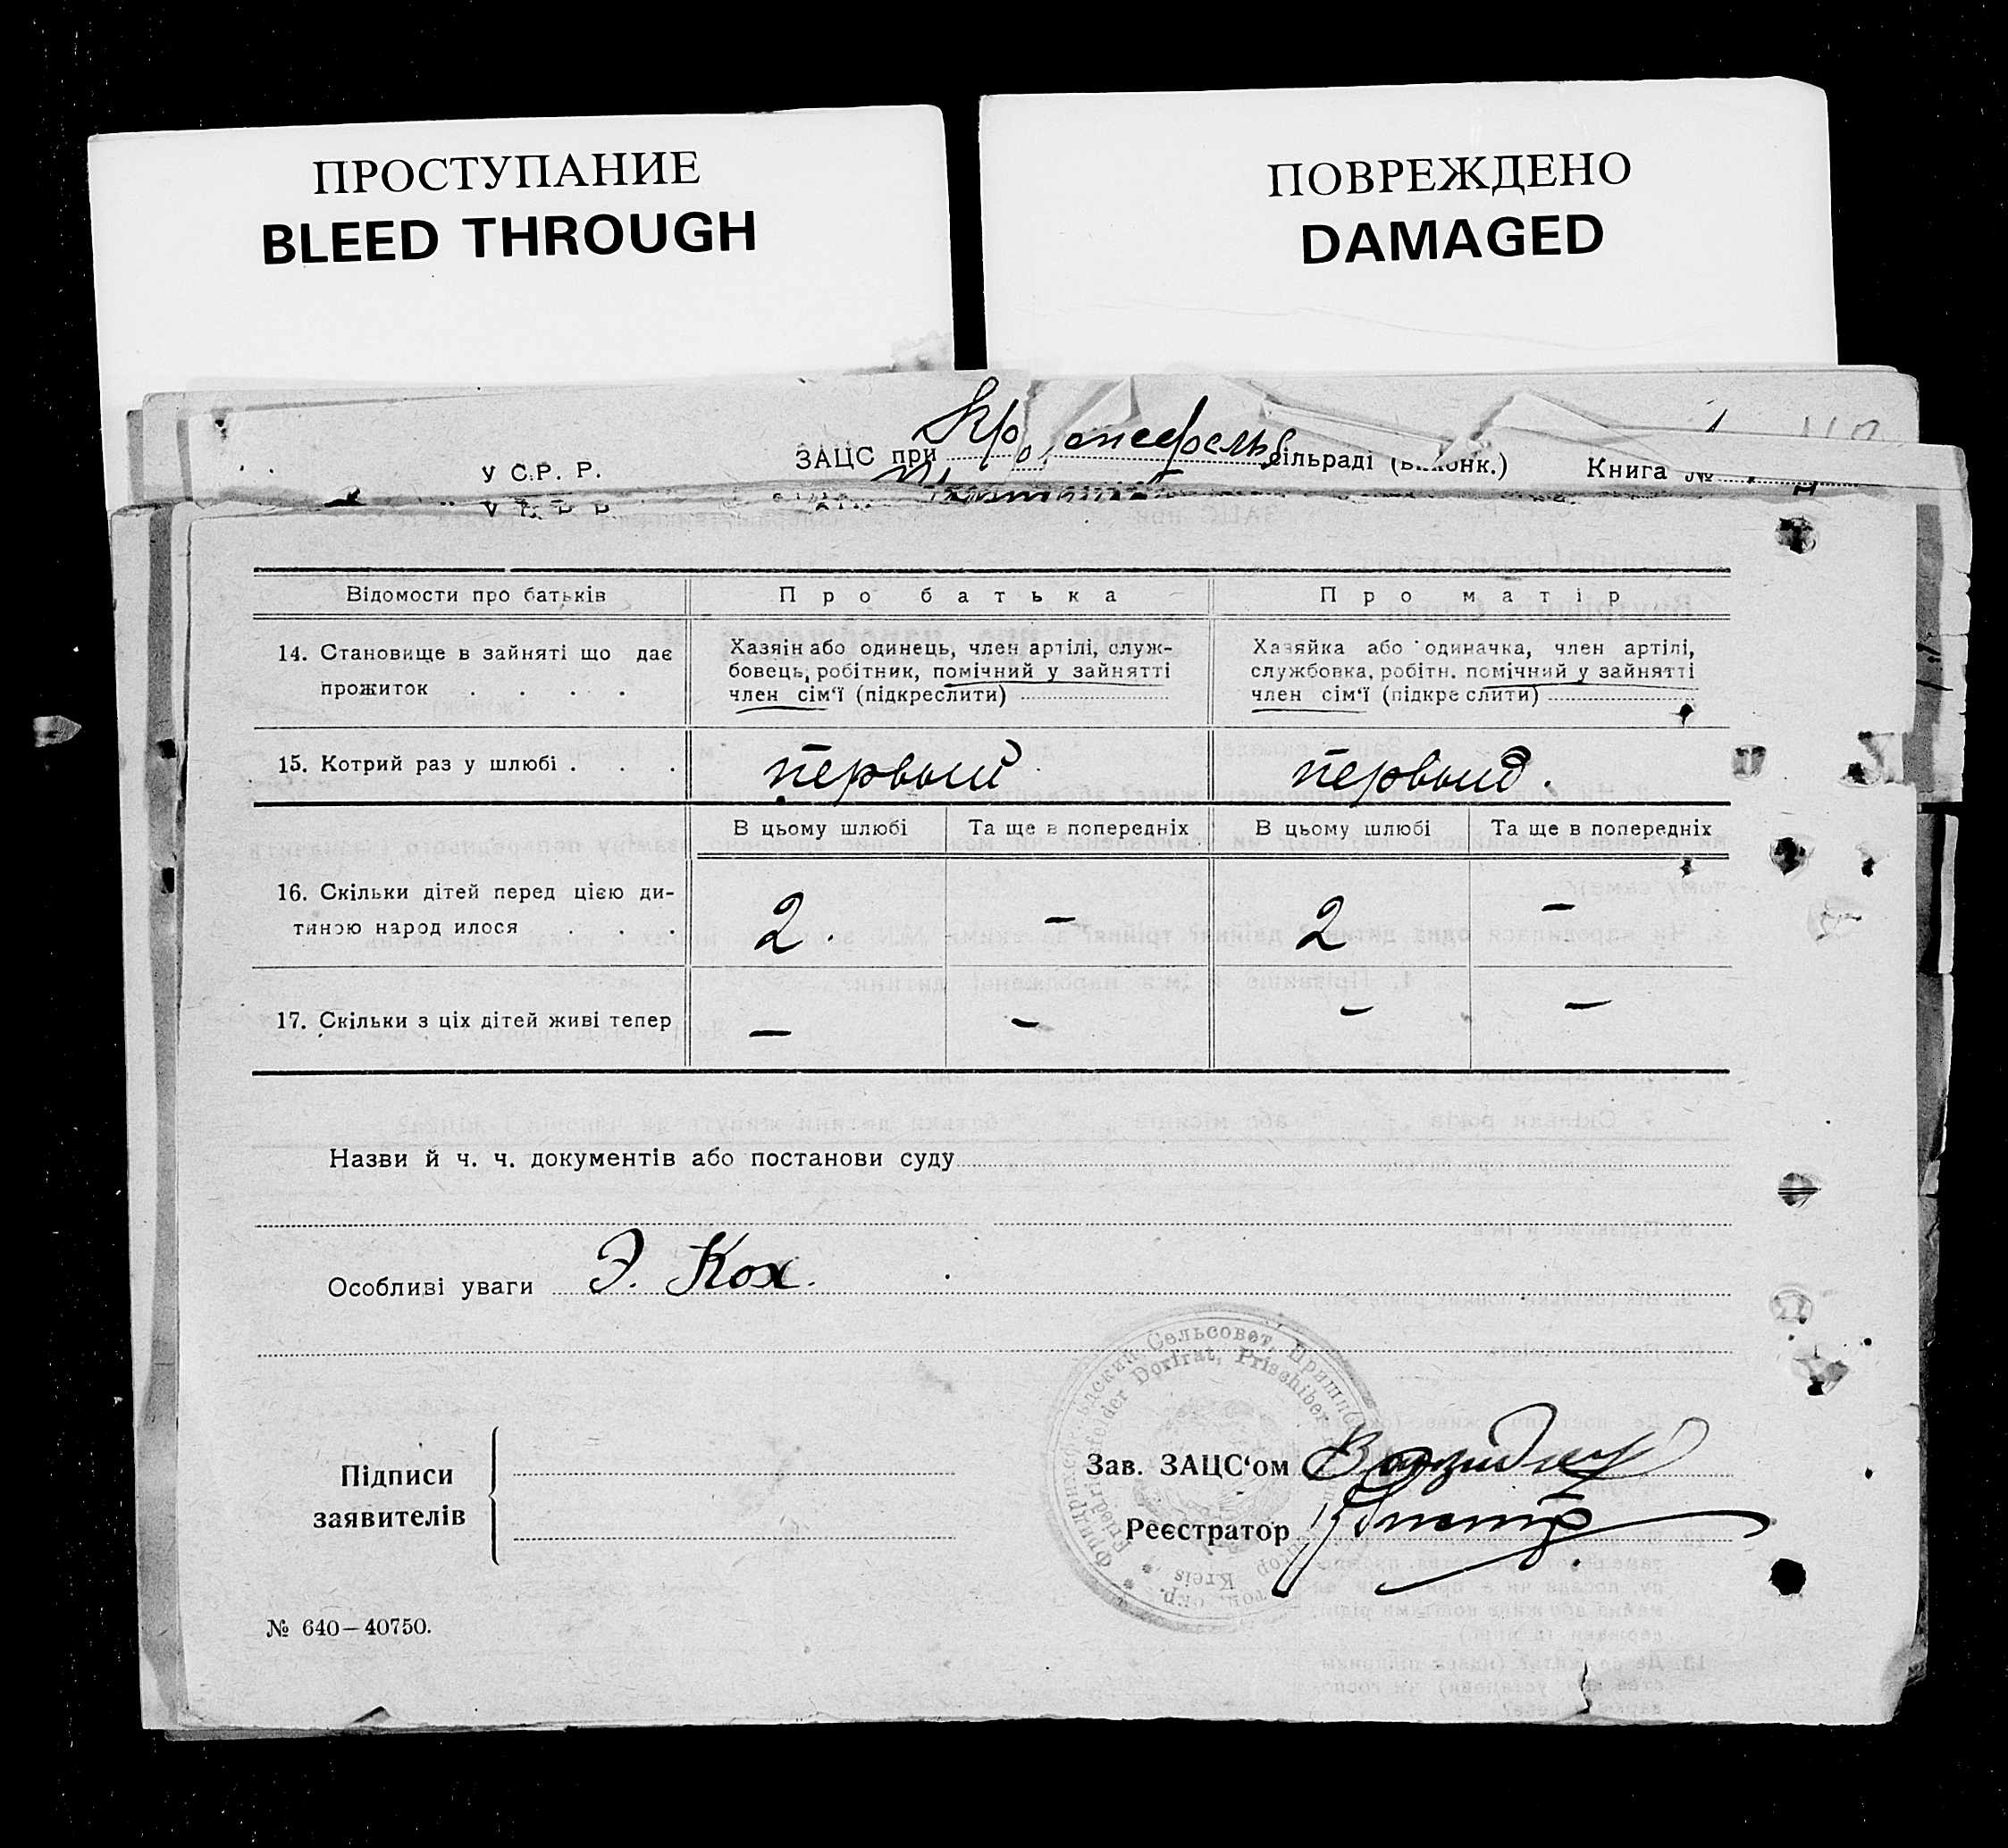 ПРОСТУПАНИЕ
BLEED THROUGH
ПОВРЕЖДЕНО
DAMAGED
У С.Р. Р.
ЗАЦС при
сільраді
Книга №
Відомости про батьків
Про батька
Про матір
14. Становище в зайняті що дає
прожиток . . . .
Хазяін або одинець, член артілі, служ-
бовець, робітник, помічний у зайнятті
член сім'ї (підкреслити)
Хазяйка або одиначка, член артілі,
службовка, робітн. помічний у зайнятті
член сім'ї (підкреслити)
15. Котрий раз у шлюбі . . .
первый
первый.
В цьому шлюбі
Та ще в попередніх
В цьому шлюбі
Та ще в попередніх
16. Скільки дітей перед цією ди-
тиною народилося . . .
2
–
2
–
17. Скільки з ціх дітей живі тепер
–
–
–
–
Назви й ч. ч. документів або постанови суду
Особливі уваги
Э. Кох.
Сельсовет,
Friedrichsfelder Dorfrat, Prischiber
Kreis
Підписи
заявителів
Зав. ЗАЦС'ом
Реєстратор
№ 640–40750.